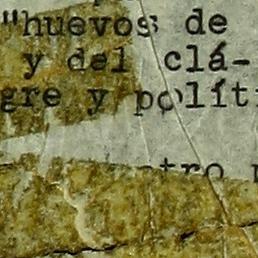 "huevos de
y del clá-
gre y polít
tro